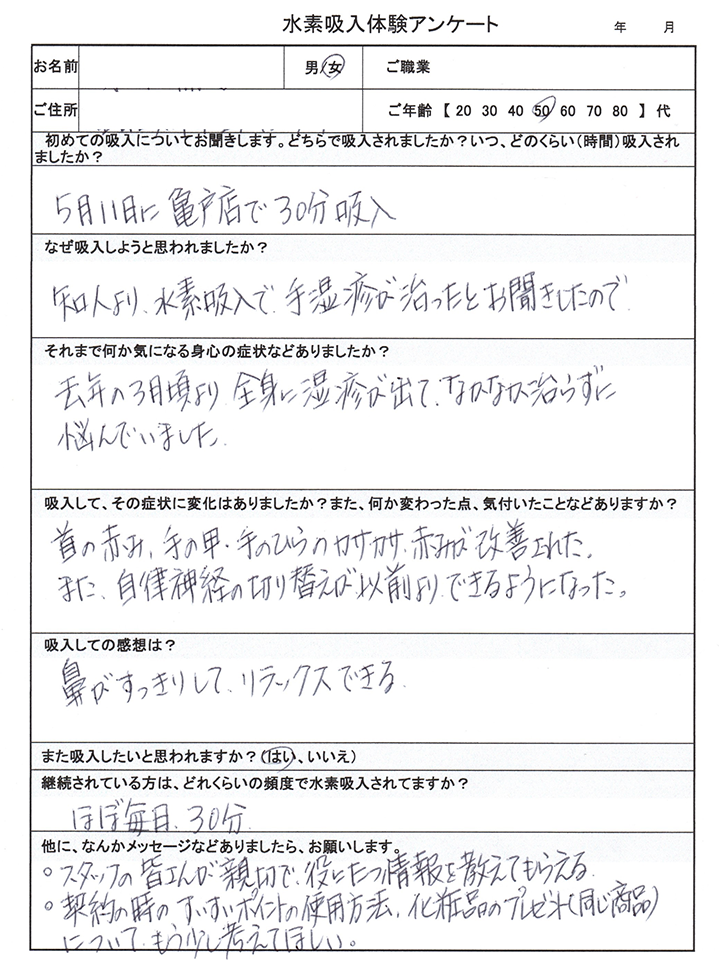 水素吸入体験アンケート
年 月
お名前
男 女
ご職業
ご住所
ご年齢【 20 30 40 50 60 70 80 】代
初めての吸入についてお聞きします。どちらで吸入されましたか?いつ、どのくらい(時間)吸入され
ましたか?
5月11日に亀戸店で30分吸入
なぜ吸入しようと思われましたか?
知人より、水素吸入で、手湿疹が治ったとお聞きしたので
それまで何か気になる身心の症状などありましたか?
去年の3月頃より、全身に湿疹が出て、なかなか治らずに
悩んでいました。
吸入して、その症状に変化はありましたか?また、何か変わった点、気付いたことなどありますか?
首の赤み、手の甲・手のひらのカサカサ、赤みが改善された。
また、自律神経の切り替えが以前よりできるようになった。
吸入しての感想は?
鼻がすっきりして、リラックスできる。
また吸入したいと思われますか?(はい、いいえ)
継続されている方は、どれくらいの頻度で水素吸入されてますか?
ほぼ毎日、30分
他に、なんかメッセージなどありましたら、お願いします。
○スタッフの皆さんが親切で、役にたつ情報を教えてもらえる。
○契約の時のすいすいポイントの使用方法、化粧品のプレゼント(同じ商品)
について、もう少し考えてほしい。